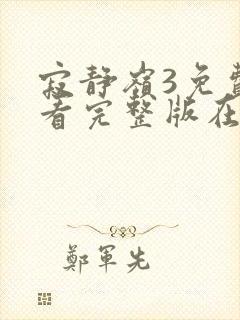 寂静嶺3免費
看完整版在
鄭軍先